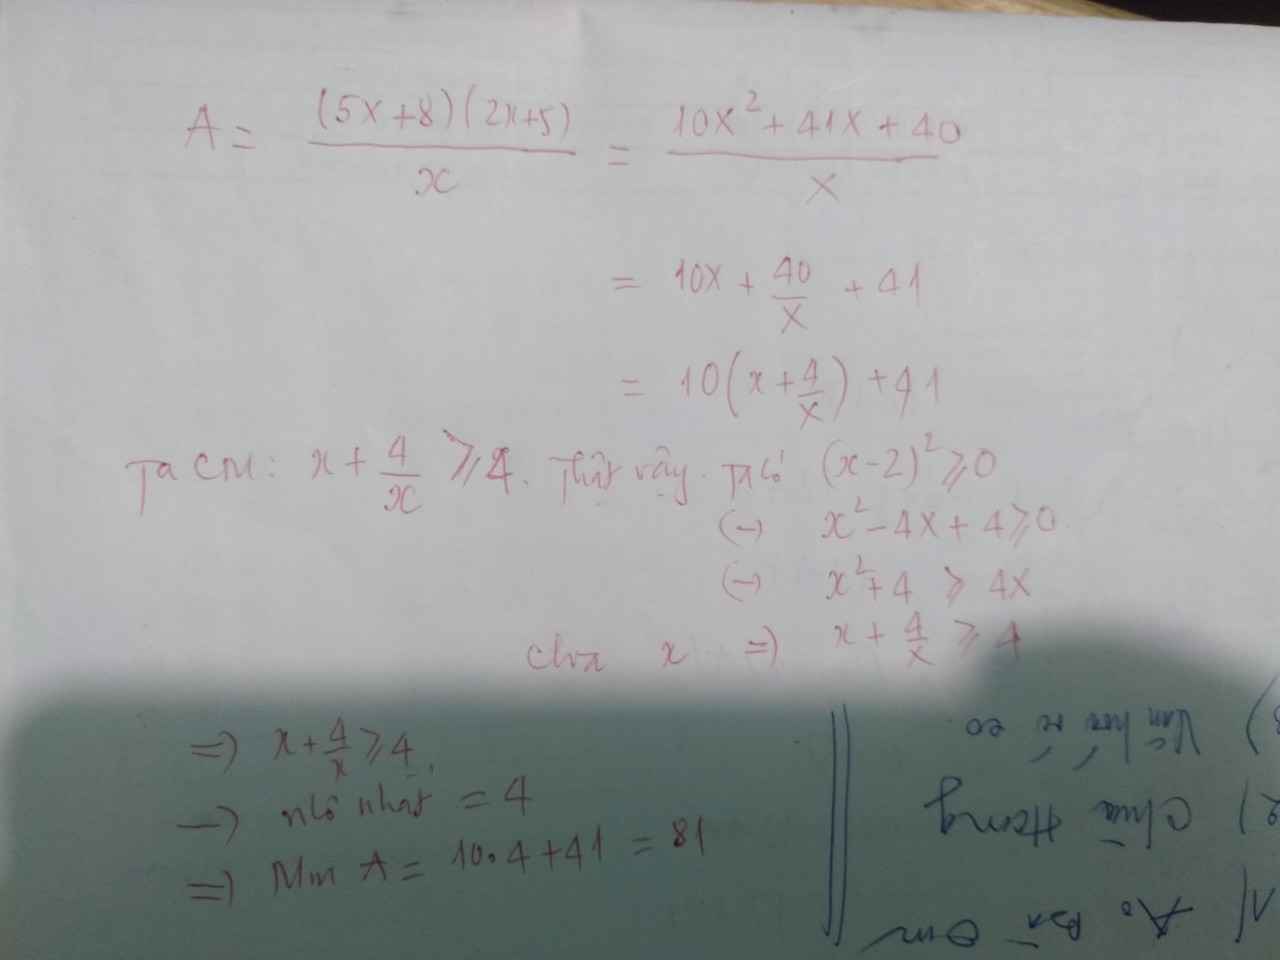 A = (5x+8)(2x+5) / x = 10x² + 41x + 40 / x
= 10x + 40/x + 41
= 10(x + 4/x) + 41
Ta CM: x + 4/x ≥ 4. Thật vậy. Ta có (x-2)² ≥ 0
(→ x² - 4x + 4 ≥ 0
(→ x² + 4 ≥ 4x
chia x => x + 4/x ≥ 4
=> x + 4/x ≥ 4.
→ nhỏ nhất = 4
=> Min A = 10.4 + 41 = 81
1)
2) Chùa Hương